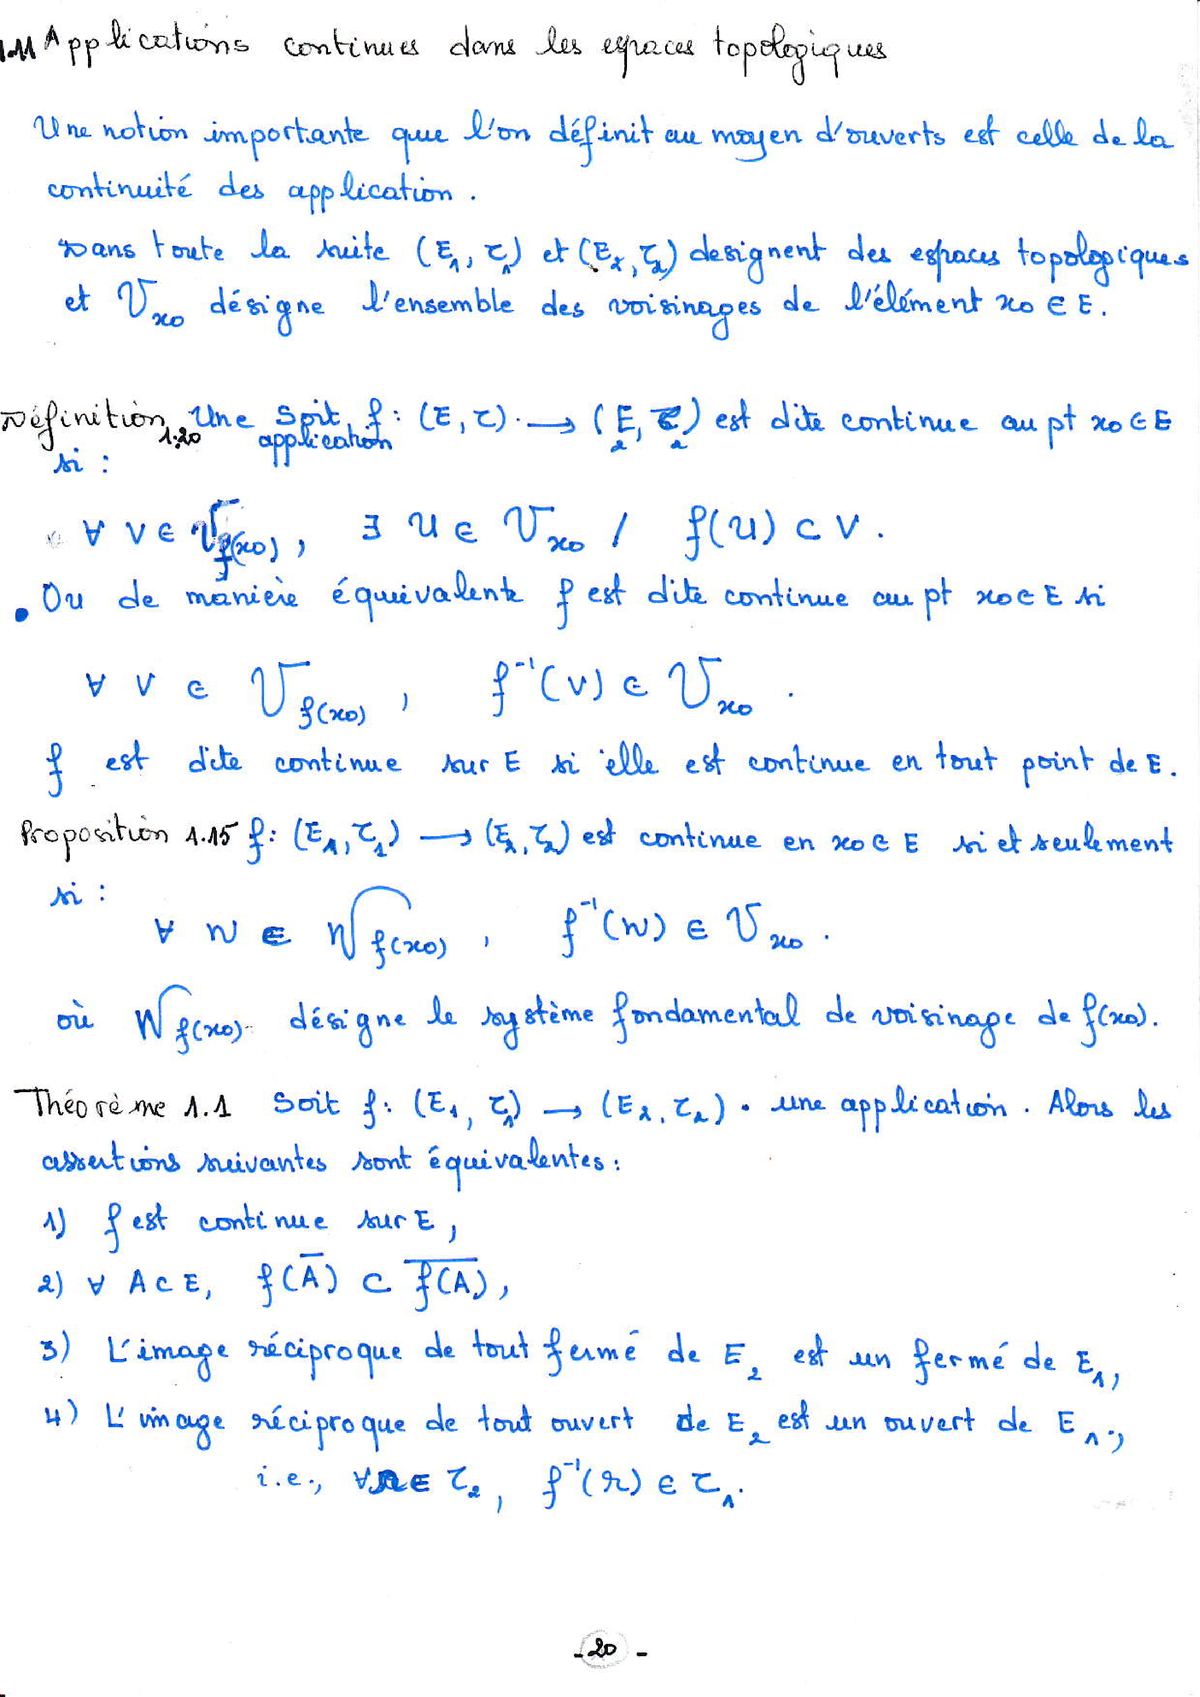 1.11 Applications continues dans les espaces topologiques
Une notion importante que l'on définit au moyen d'ouverts est celle de la
continuité des application.
Dans toute la suite (E₁, τ₁) et (E₂, τ₂) designent des espaces topologiques
et 𝒱_{x₀} désigne l'ensemble des voisinages de l'élément x₀ ∈ E.
Définition 1.20 Une Soit application f : (E, τ) → (E₂, τ₂) est dite continue au pt x₀ ∈ E
si :
∀ V ∈ 𝒱_{f(x₀)}, ∃ U ∈ 𝒱_{x₀} / f(U) ⊂ V.
• Ou de manière équivalente f est dite continue au pt x₀ ∈ E si
∀ V ∈ 𝒱_{f(x₀)}, f⁻¹(V) ∈ 𝒱_{x₀}.
f est dite continue sur E si elle est continue en tout point de E.
Proposition 1.15 f : (E₁, τ₁) → (E₂, τ₂) est continue en x₀ ∈ E si et seulement
si :
∀ W ∈ 𝒲_{f(x₀)}, f⁻¹(W) ∈ 𝒱_{x₀}.
où 𝒲_{f(x₀)} désigne le système fondamental de voisinage de f(x₀).
Théorème 1.1 Soit f : (E₁, τ₁) → (E₂, τ₂). une application. Alors les
assertions suivantes sont équivalentes :
1) f est continue sur E,
2) ∀ A ⊂ E, f(A̅) ⊂ \overline{f(A)},
3) L'image réciproque de tout fermé de E₂ est un fermé de E₁,
4) L'image réciproque de tout ouvert de E₂ est un ouvert de E₁.,
i.e., ∀ Ω ∈ τ₂, f⁻¹(Ω) ∈ τ₁.
- 20 -